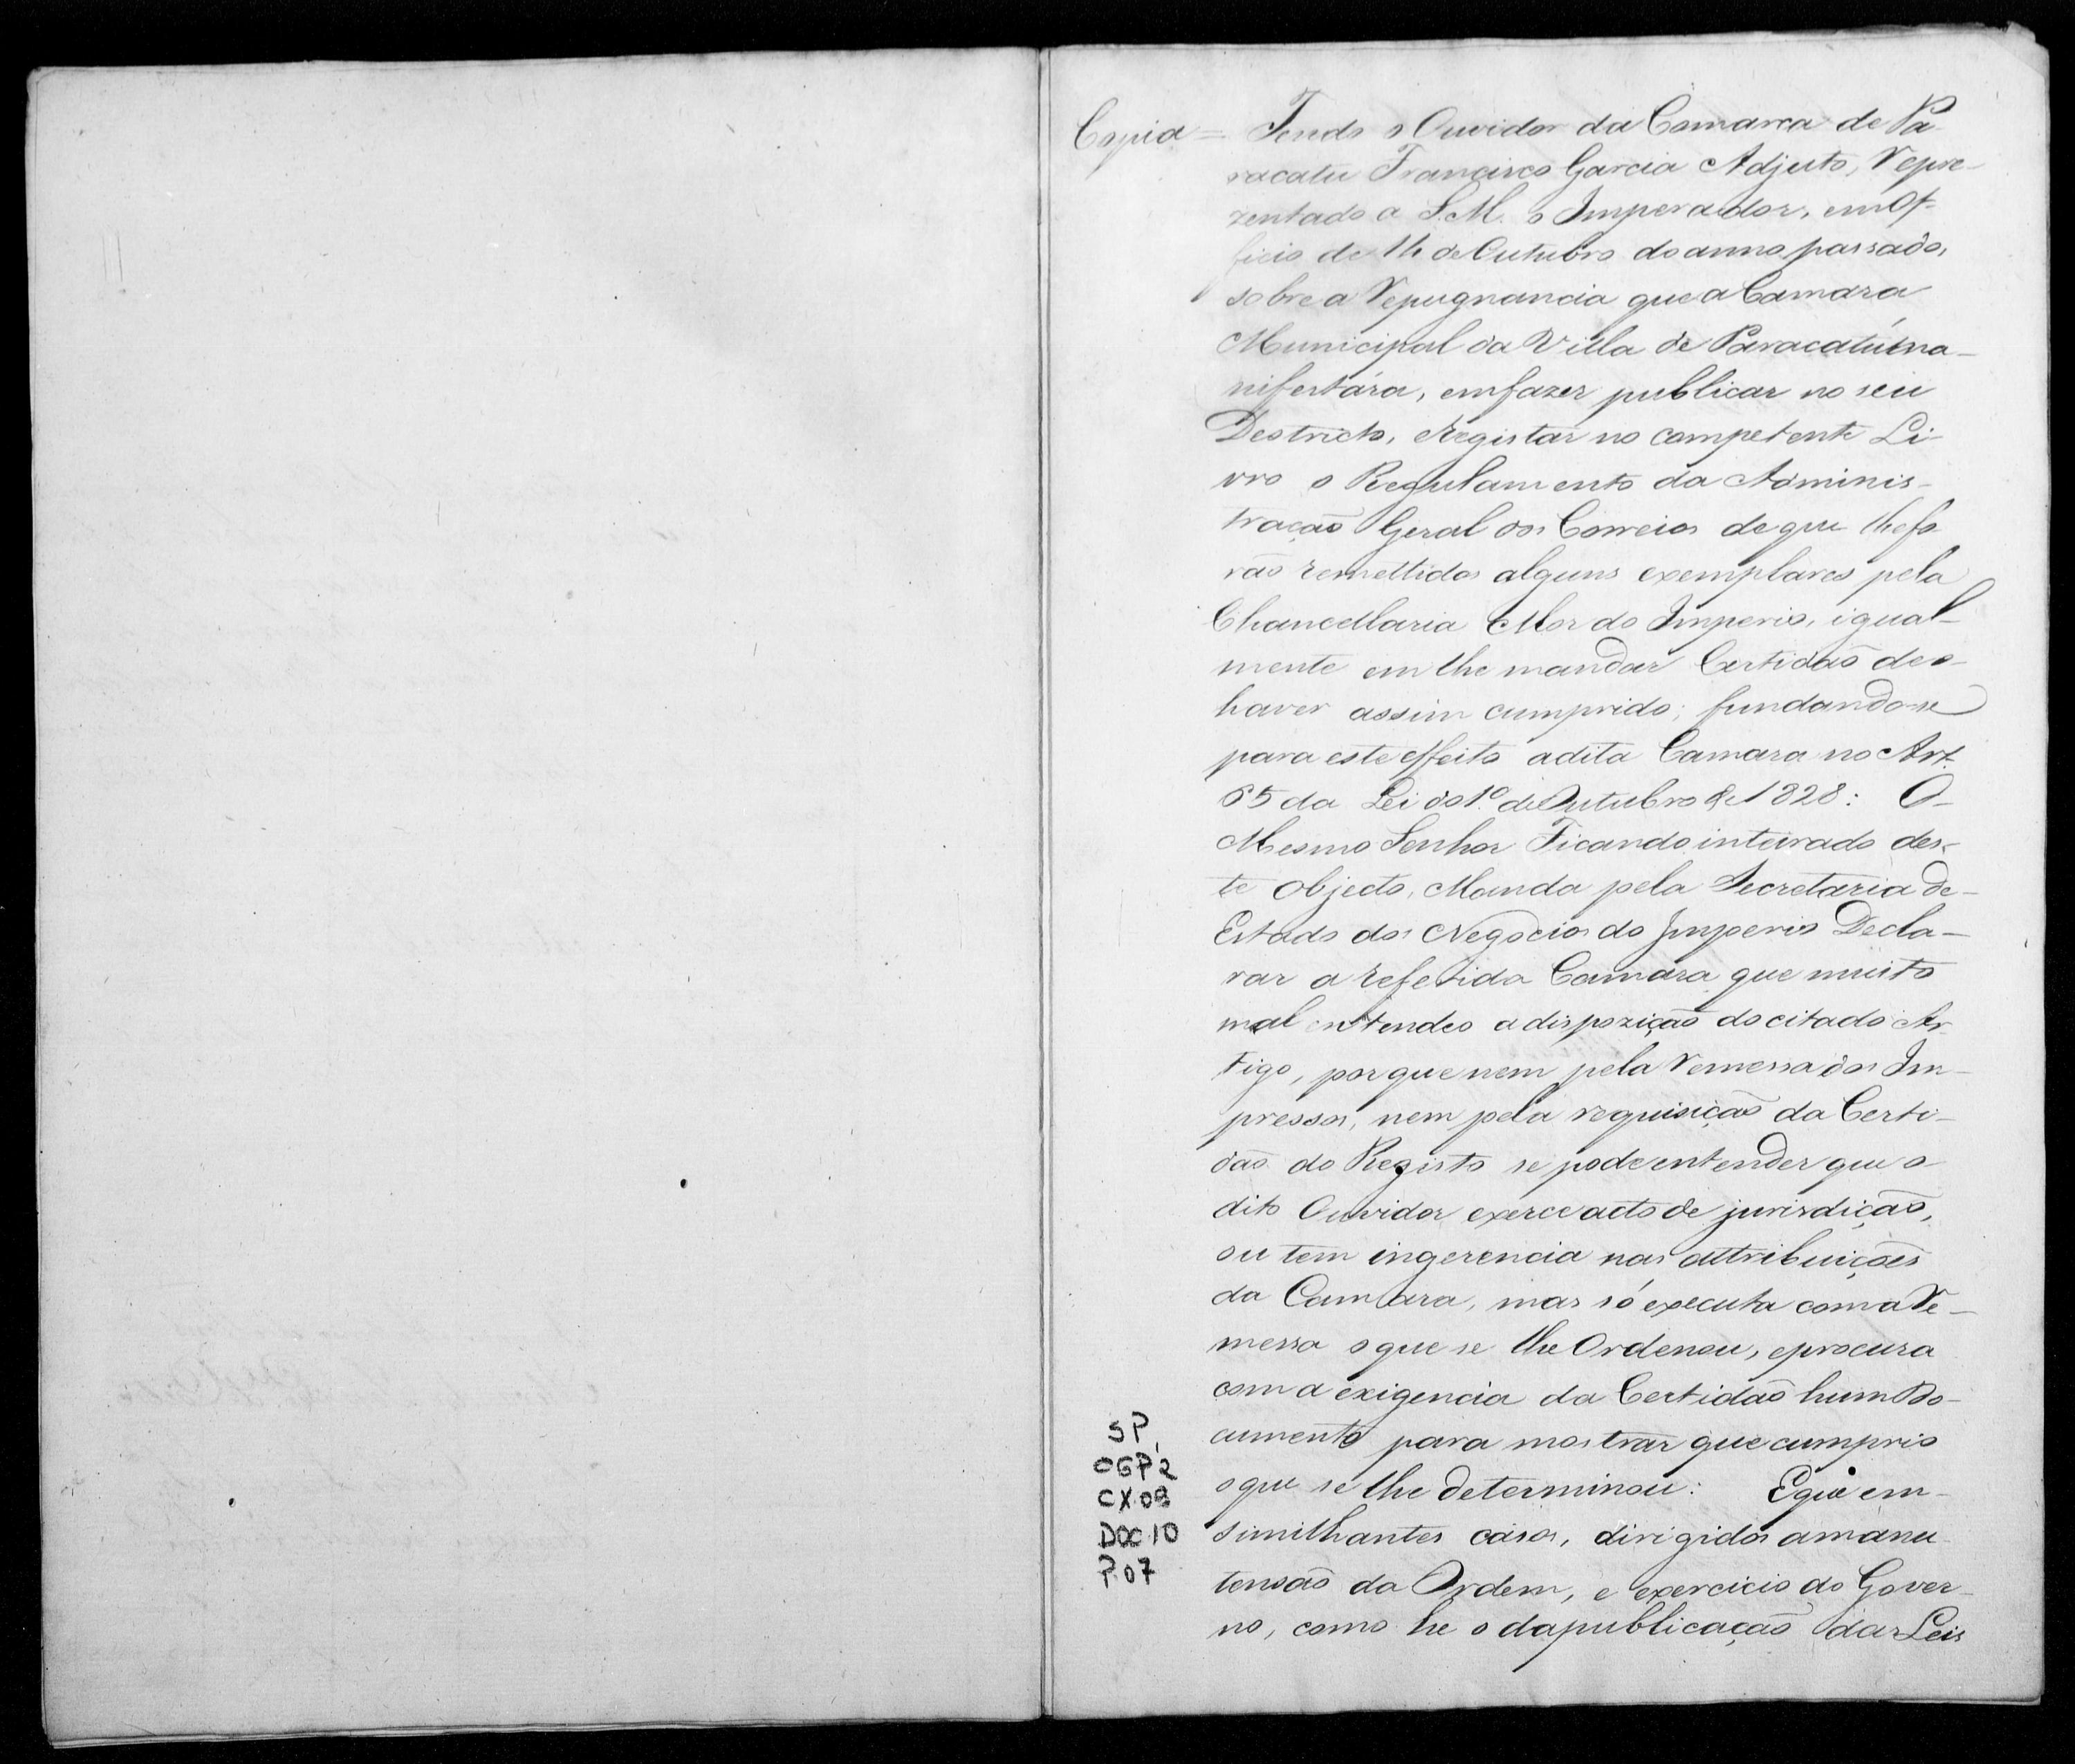 Copia = Tendo o Ouvidor da Comarca de Pa-
racatu Francisco Garcia Adjuto, Repre-
zentado a S.M. o Imperador, em Of-
ficio de 14 de Outubro do anno passado,
sobre a Repugnancia que a Camara
Municipal da Villa de Paracatú ma-
nifestára, em fazer publicar no seu
Destricto, e registar no competente Li-
vro o Regulamento da Adminis-
tração Geral dos Correios de que lhe fo
rão remettidos alguns exemplares pela
Chancellaria Mor do Imperio, igual-
mente em lhe mandar Certidão de o
haver assim cumprido; fundando-se
para este effeito a dita Camara no Art.
65 da Lei do 1º de Outubro de 1828: O-
Mesmo Senhor Ficando inteirado des-
te objecto, Manda pela Secretaria de-
Estado dos Negocios do Imperio Decla-
rar a referida Camara que muito
mal entendeo a dispozição do citado Ar-
tigo, por que nem pela Remessa dos Im-
pressos, nem pela requisição da Certi-
dão do Registo se pode entender que o
dito Ouvidor exerce acto de jurisdição,
ou tem ingerencia nas attribuições
da Camara, mas só executa com a Re-
messa o que se lhe Ordenou, e procura
com a exigencia da Certidão hum Do-
cumento para mostrar que cumprio
o que se lhe determinou: E que em-
similhantes casos, dirigidos a manu
tensão da Ordem, e exercicio do Gover-
no, como he o da publicação das Leis
SP,
CGP2
CX.08
DOC.10
P.07